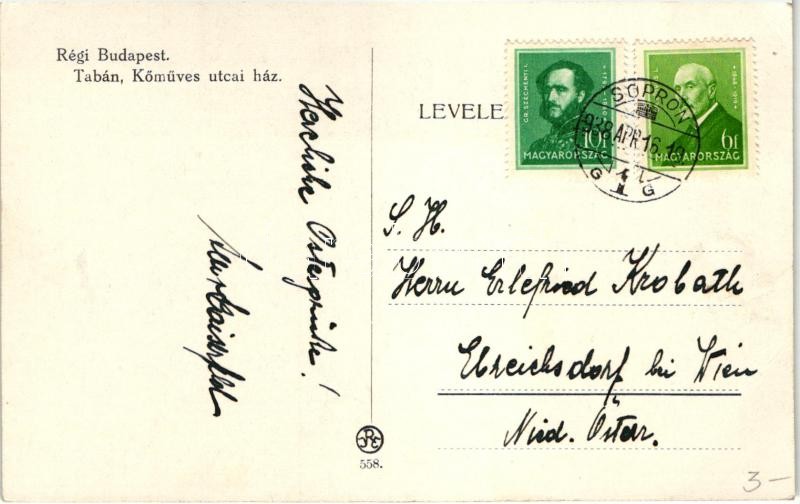 Régi Budapest.
Tabán, Kőműves utcai ház.
Herzliche Ostergrüße!
LEVELE
GR. SZÉCHENYI I.
10f
MAGYARORSZÁG
6f
MAGYARORSZÁG
SOPRON
1938 APR 16
G 1 G
S. H.
Herrn Erlefried Krobath
Ebreichsdorf bei Wien
Nied. Österr.
558.
3-